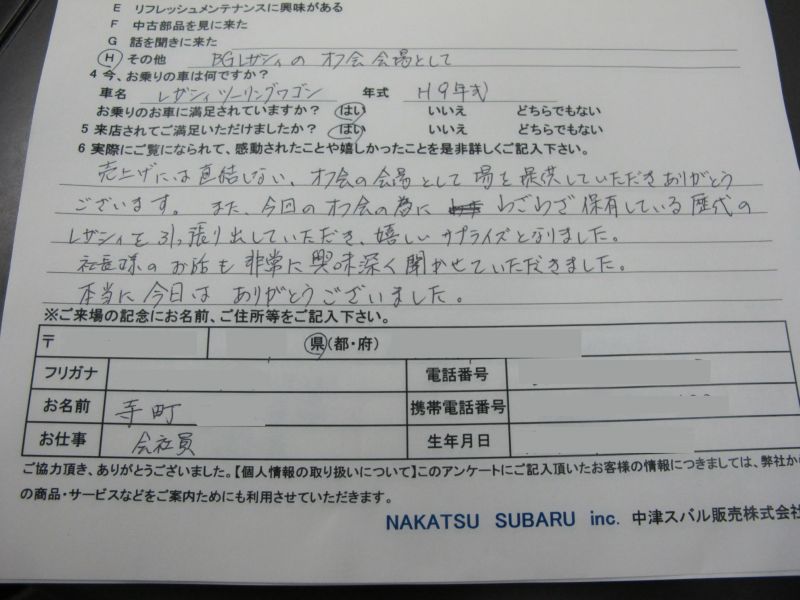 E リフレッシュメンテナンスに興味がある
F 中古部品を見に来た
G 話を聞きに来た
H その他 BGレガシィの オフ会 会場として
4 今、お乗りの車は何ですか?
車名 レガシィツーリングワゴン 年式 H9年式
お乗りのお車に満足されていますか? はい いいえ どちらでもない
5 来店されてご満足いただけましたか? はい いいえ どちらでもない
6 実際にご覧になられて、感動されたことや嬉しかったことを是非詳しくご記入下さい。
売上げには直結しない、オフ会の会場として 場を提供していただきありがとう
ございます。 また、今回のオフ会の為に わざわざ 保有している歴代の
レガシィを引っ張り出していただき、嬉しいサプライズとなりました。
社長様のお話も 非常に興味深く聞かせていただきました。
本当に今日は ありがとうございました。
※ご来場の記念にお名前、ご住所等をご記入下さい。
〒 県(都・府)
フリガナ 電話番号
お名前 寺町 携帯電話番号
お仕事 会社員 生年月日
ご協力頂き、ありがとうございました。【個人情報の取り扱いについて】このアンケートにご記入頂いたお客様の情報につきましては、弊社か
の商品・サービスなどをご案内ためにも利用させていただきます。
NAKATSU SUBARU inc. 中津スバル販売株式会社